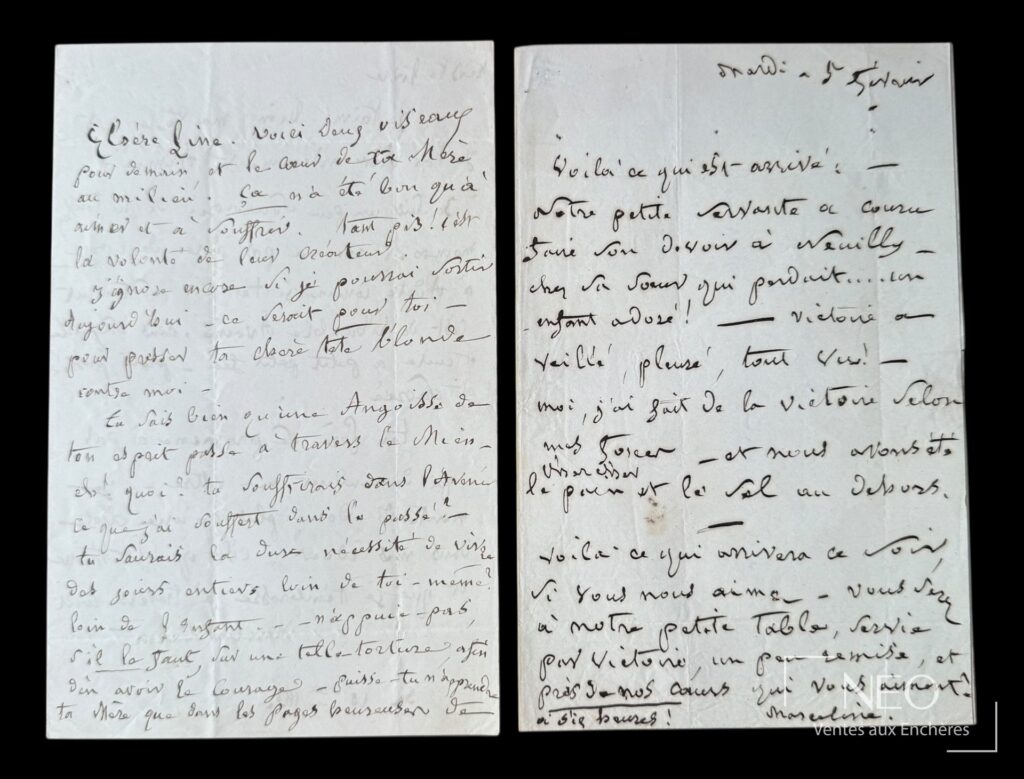 Chère Line. Voici deux oiseaux
pour demain et le cœur de ta Mère
au milieu! Ça n'a été bon qu'à
aimer et à souffrir. Tant pis! C'est
la volonté de leur créateur.
J'ignore encore si je pourrai sortir
aujourd'hui - ce serait pour toi -
pour presser ta chère tête blonde
contre moi -
Tu sais bien qu'une Angoisse de
ton esprit passe à travers le Mien -
eh! quoi? tu souffrirais dans l'avenir
ce que j'ai souffert dans le passé?
tu saurais la dure nécessité de vivre
des jours entiers loin de toi-même?
loin de l'enfant. - - n'appuie-pas,
s'il le faut, sur une telle torture, afin
d'en avoir le courage - puisse-tu n'apprendre
ta Mère que dans les pages heureuses de
Mardi - 5 février
Voilà ce qui est arrivé: -
Notre petite servante a couru
faire son devoir à Neuilly -
chez sa sœur qui perdait.... un
enfant adoré! - Victoire a
veillé, pleuré, tout
moi, j'ai fait de la victoire selon
mes forces - et nous avons été
le pain et le sel au dehors.
-
Voilà ce qui arrivera ce soir,
si vous nous aimez - vous serez
à notre petite table, servie
par Victoire, un peu remise, et
près de nos cœurs qui vous aiment!
à six heures!
Marceline.
NEO
Ventes aux Enchères